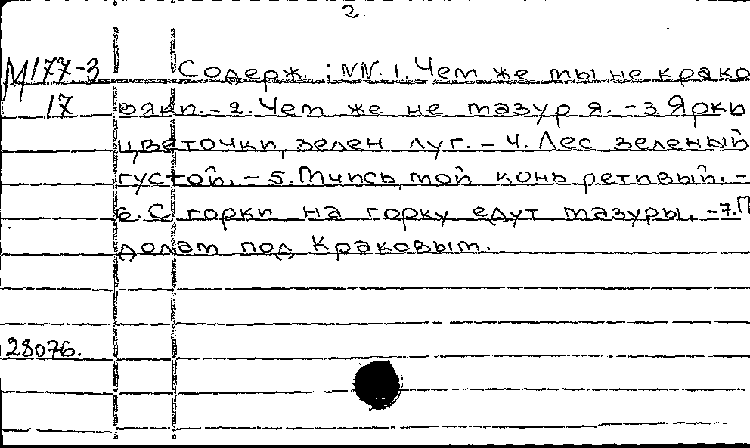 2.
М177-3 Содерж.: NN. 1. Чем же ты не крако
17 вяк. - 2. Чем же не мазур я. - 3. Ярки
цветочки, зелен луг. - 4. Лес зеленый
густой. - 5. Мчись, мой конь ретивый. -
6. С горки на горку едут мазуры. - 7. П
долам под Краковым.
28076.